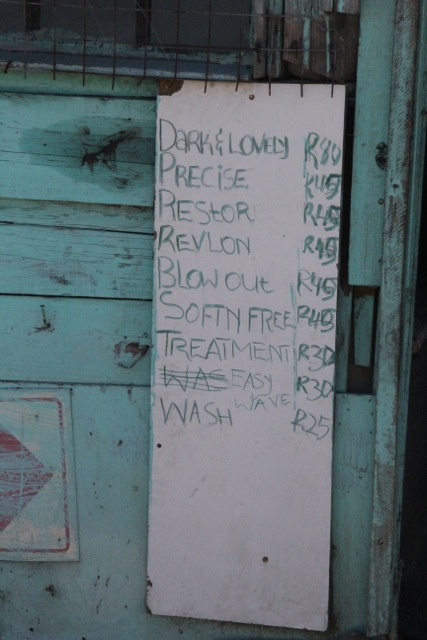 DARK & LOVELY R80
PRECISE R45
RESTOR R45
REVLON R45
BLOW OUT R45
SOFTN FREE R45
TREATMENT R30
EASY WAVE R30
WASH R25